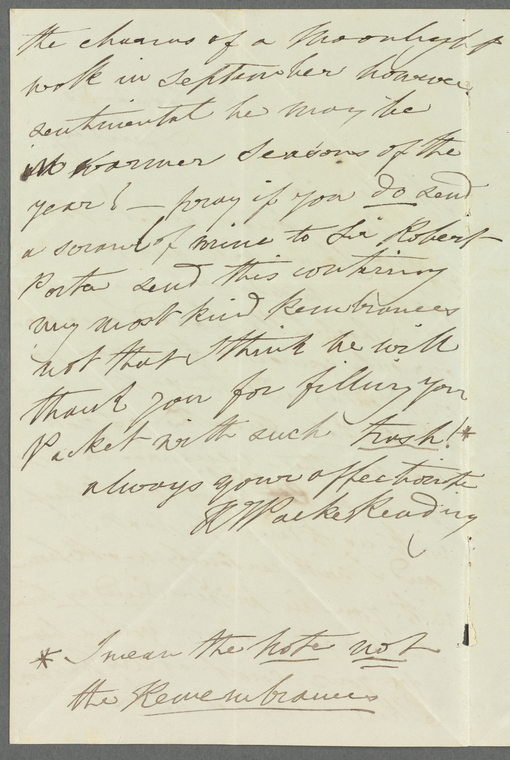 the charms of a Moonlight
walk in September however
sentimental he may be
in warmer seasons of the
year! — pray if you do send
a scrawl of mine to Sir Robert
Porter send this containing
my most kind Remembrances
not that I think he will
thank you for filling your
Packet with such trash!*
always your affectionate
Reading
* I mean the note not
the Remembrances